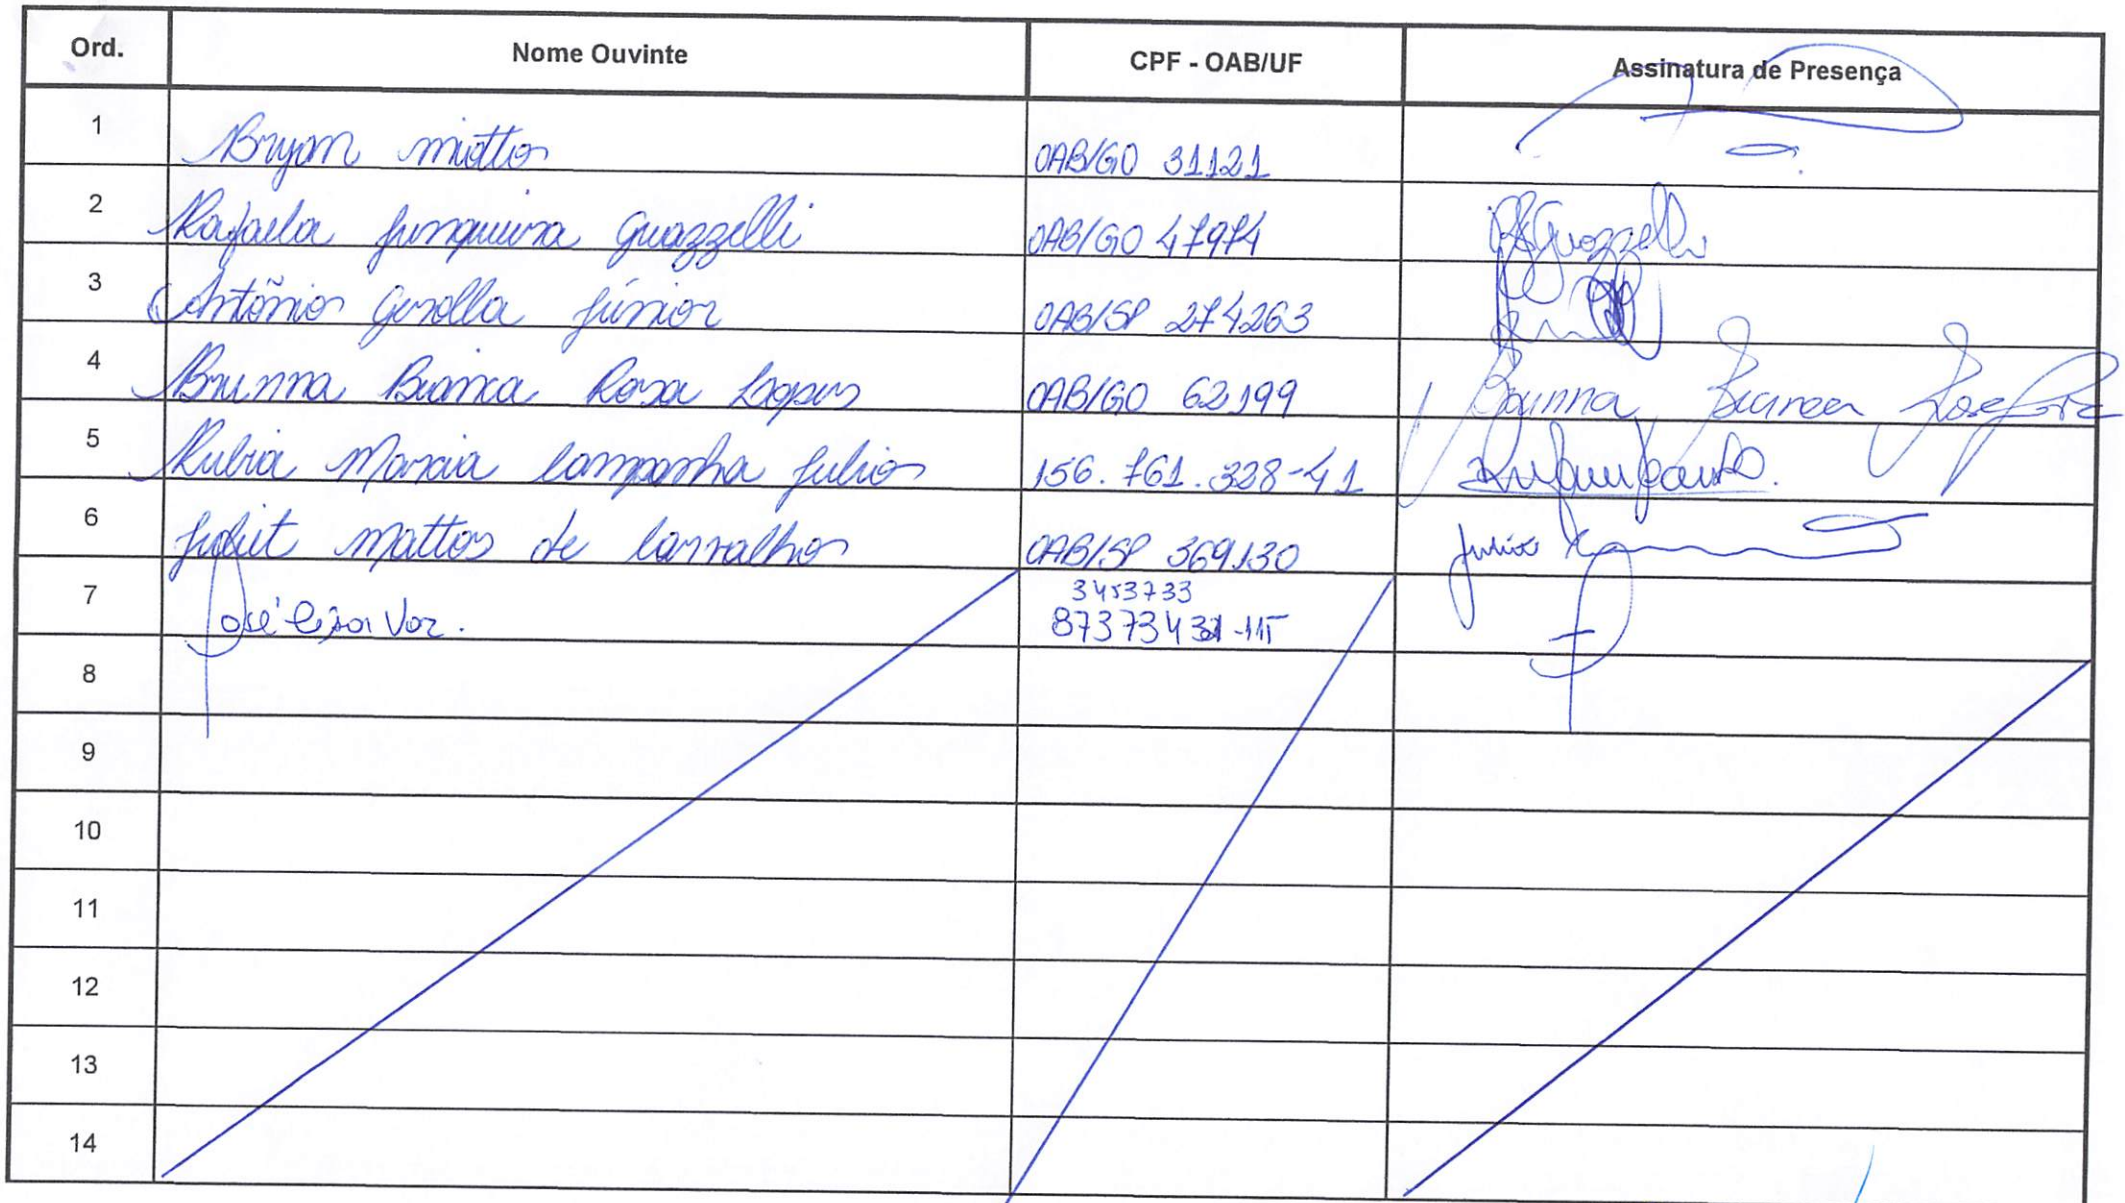 Ord. Nome Ouvinte CPF - OAB/UF Assinatura de Presença
1 Bryan miotto OAB/GO 31121
2 Rafaela Junqueira Guazzelli OAB/GO 47974 Guazzelli
3 Antônio Gerolla Júnior OAB/SP 274263
4 Brunna Bianca Rosa Lopes OAB/GO 62199 Brunna Bianca
5 Rubia Marcia Campanha Julio 156.761.328-41
6 Mattos de Carvalho OAB/SP 369130
3453733
7 José Vaz.
8
9
10
11
12
13
14